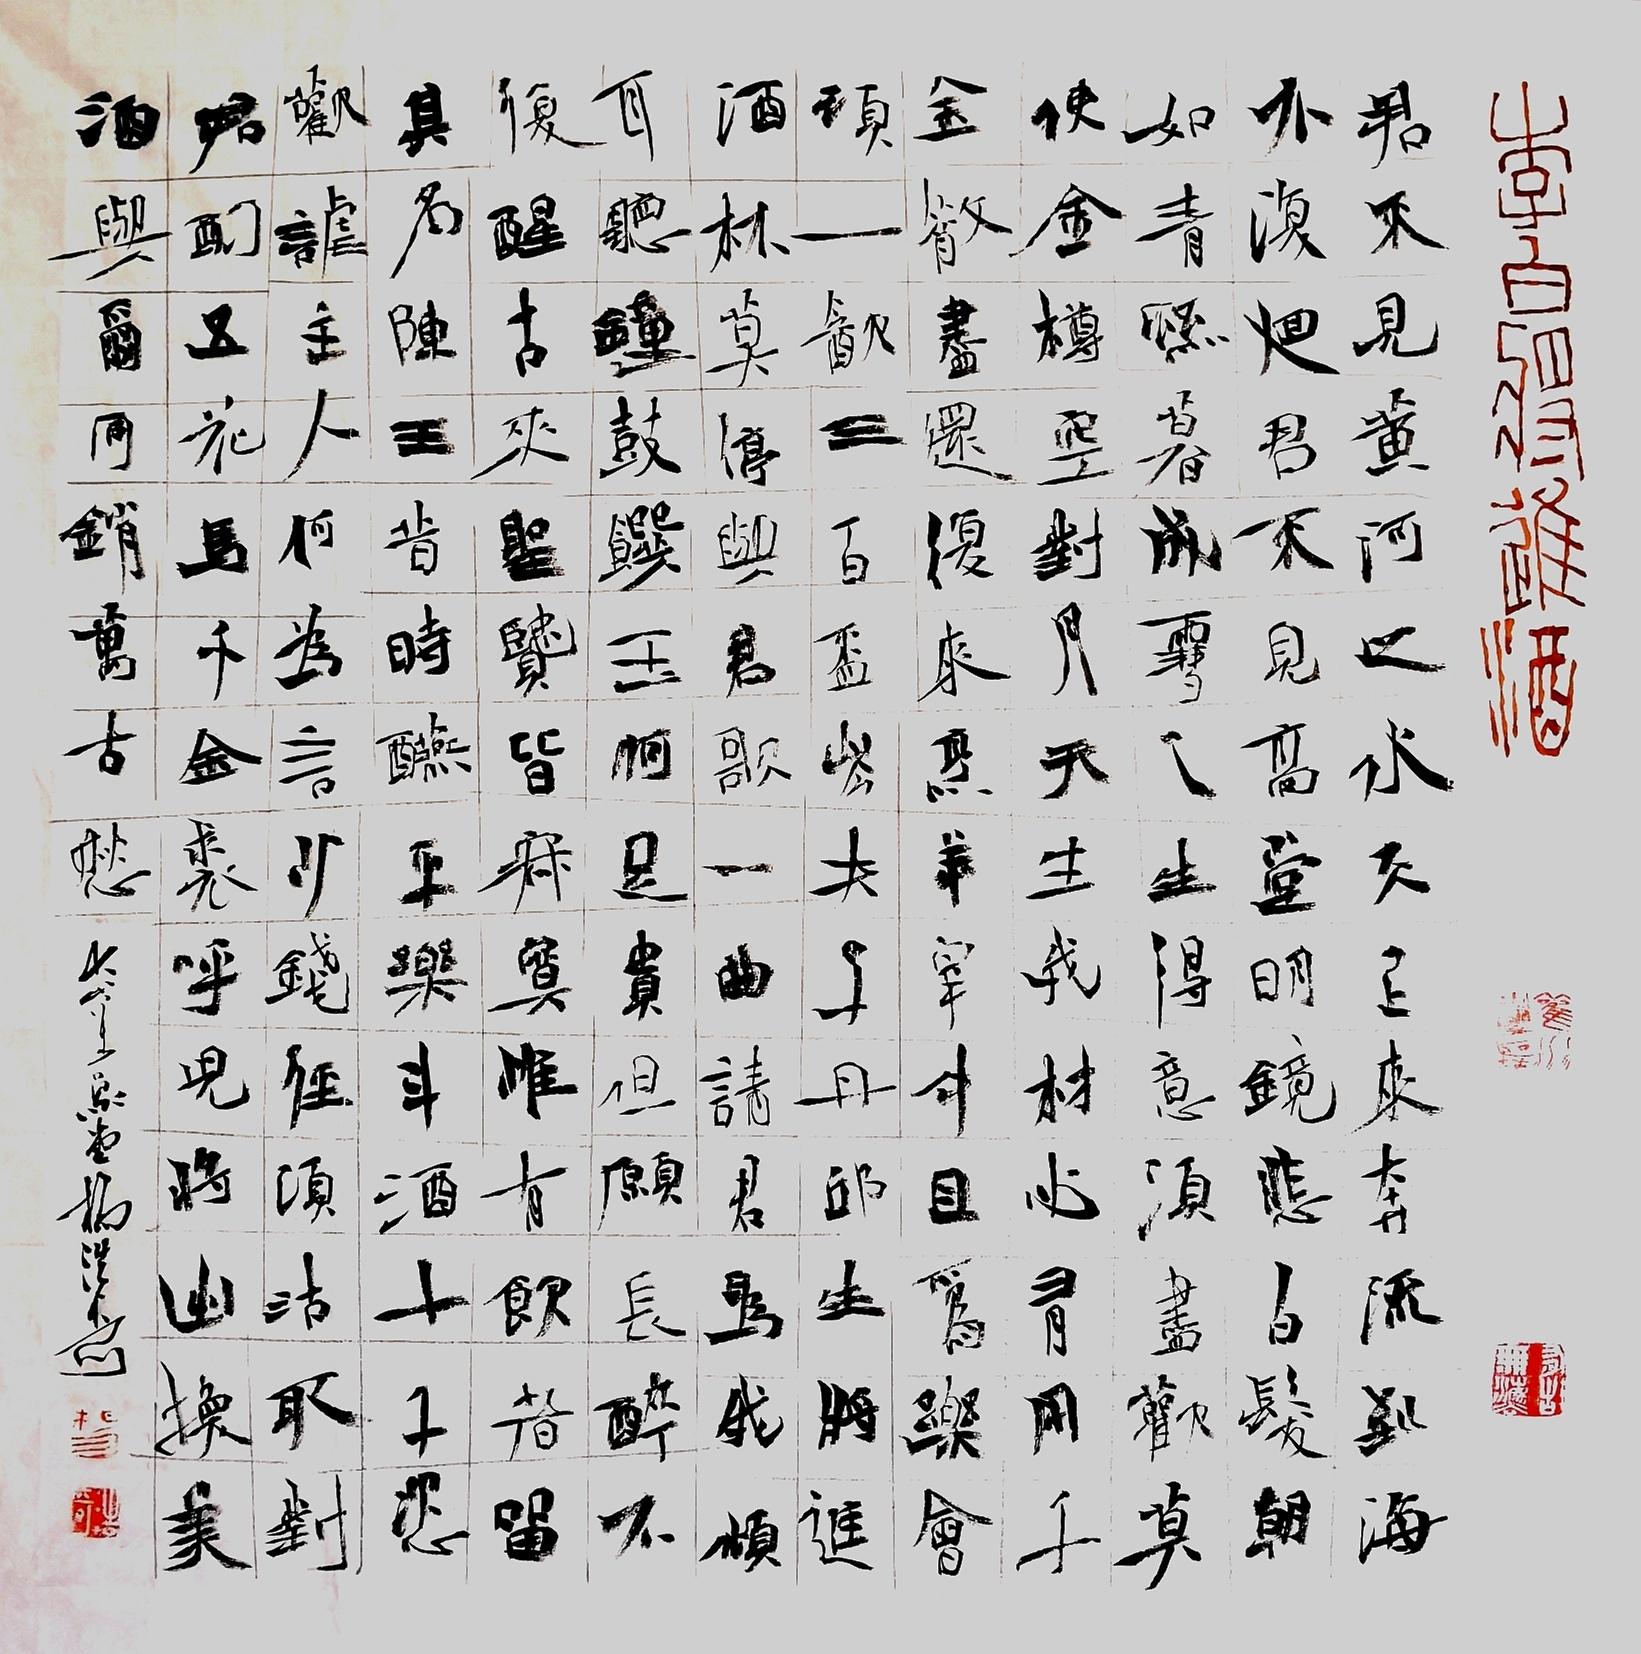 李白將進酒
君不見黃河之水天上來奔流到海
不復迴君不見高堂明鏡悲白髮朝
如青絲暮成雪人生得意須盡歡莫
使金樽空對月天生我材必有用千
金散盡還復來烹羊宰牛且爲樂會
須一飲三百盃岑夫子丹邱生將進
酒杯莫停與君歌一曲請君爲我傾
耳聽鐘鼓饌玉何足貴但願長醉不
復醒古來聖賢皆寂寞惟有飲者留
其名陳王昔時醼平樂斗酒十千恣
歡謔主人何為言少錢徑須沽取對
君酌五花馬千金裘呼兒將出換美
酒與爾同銷萬古愁